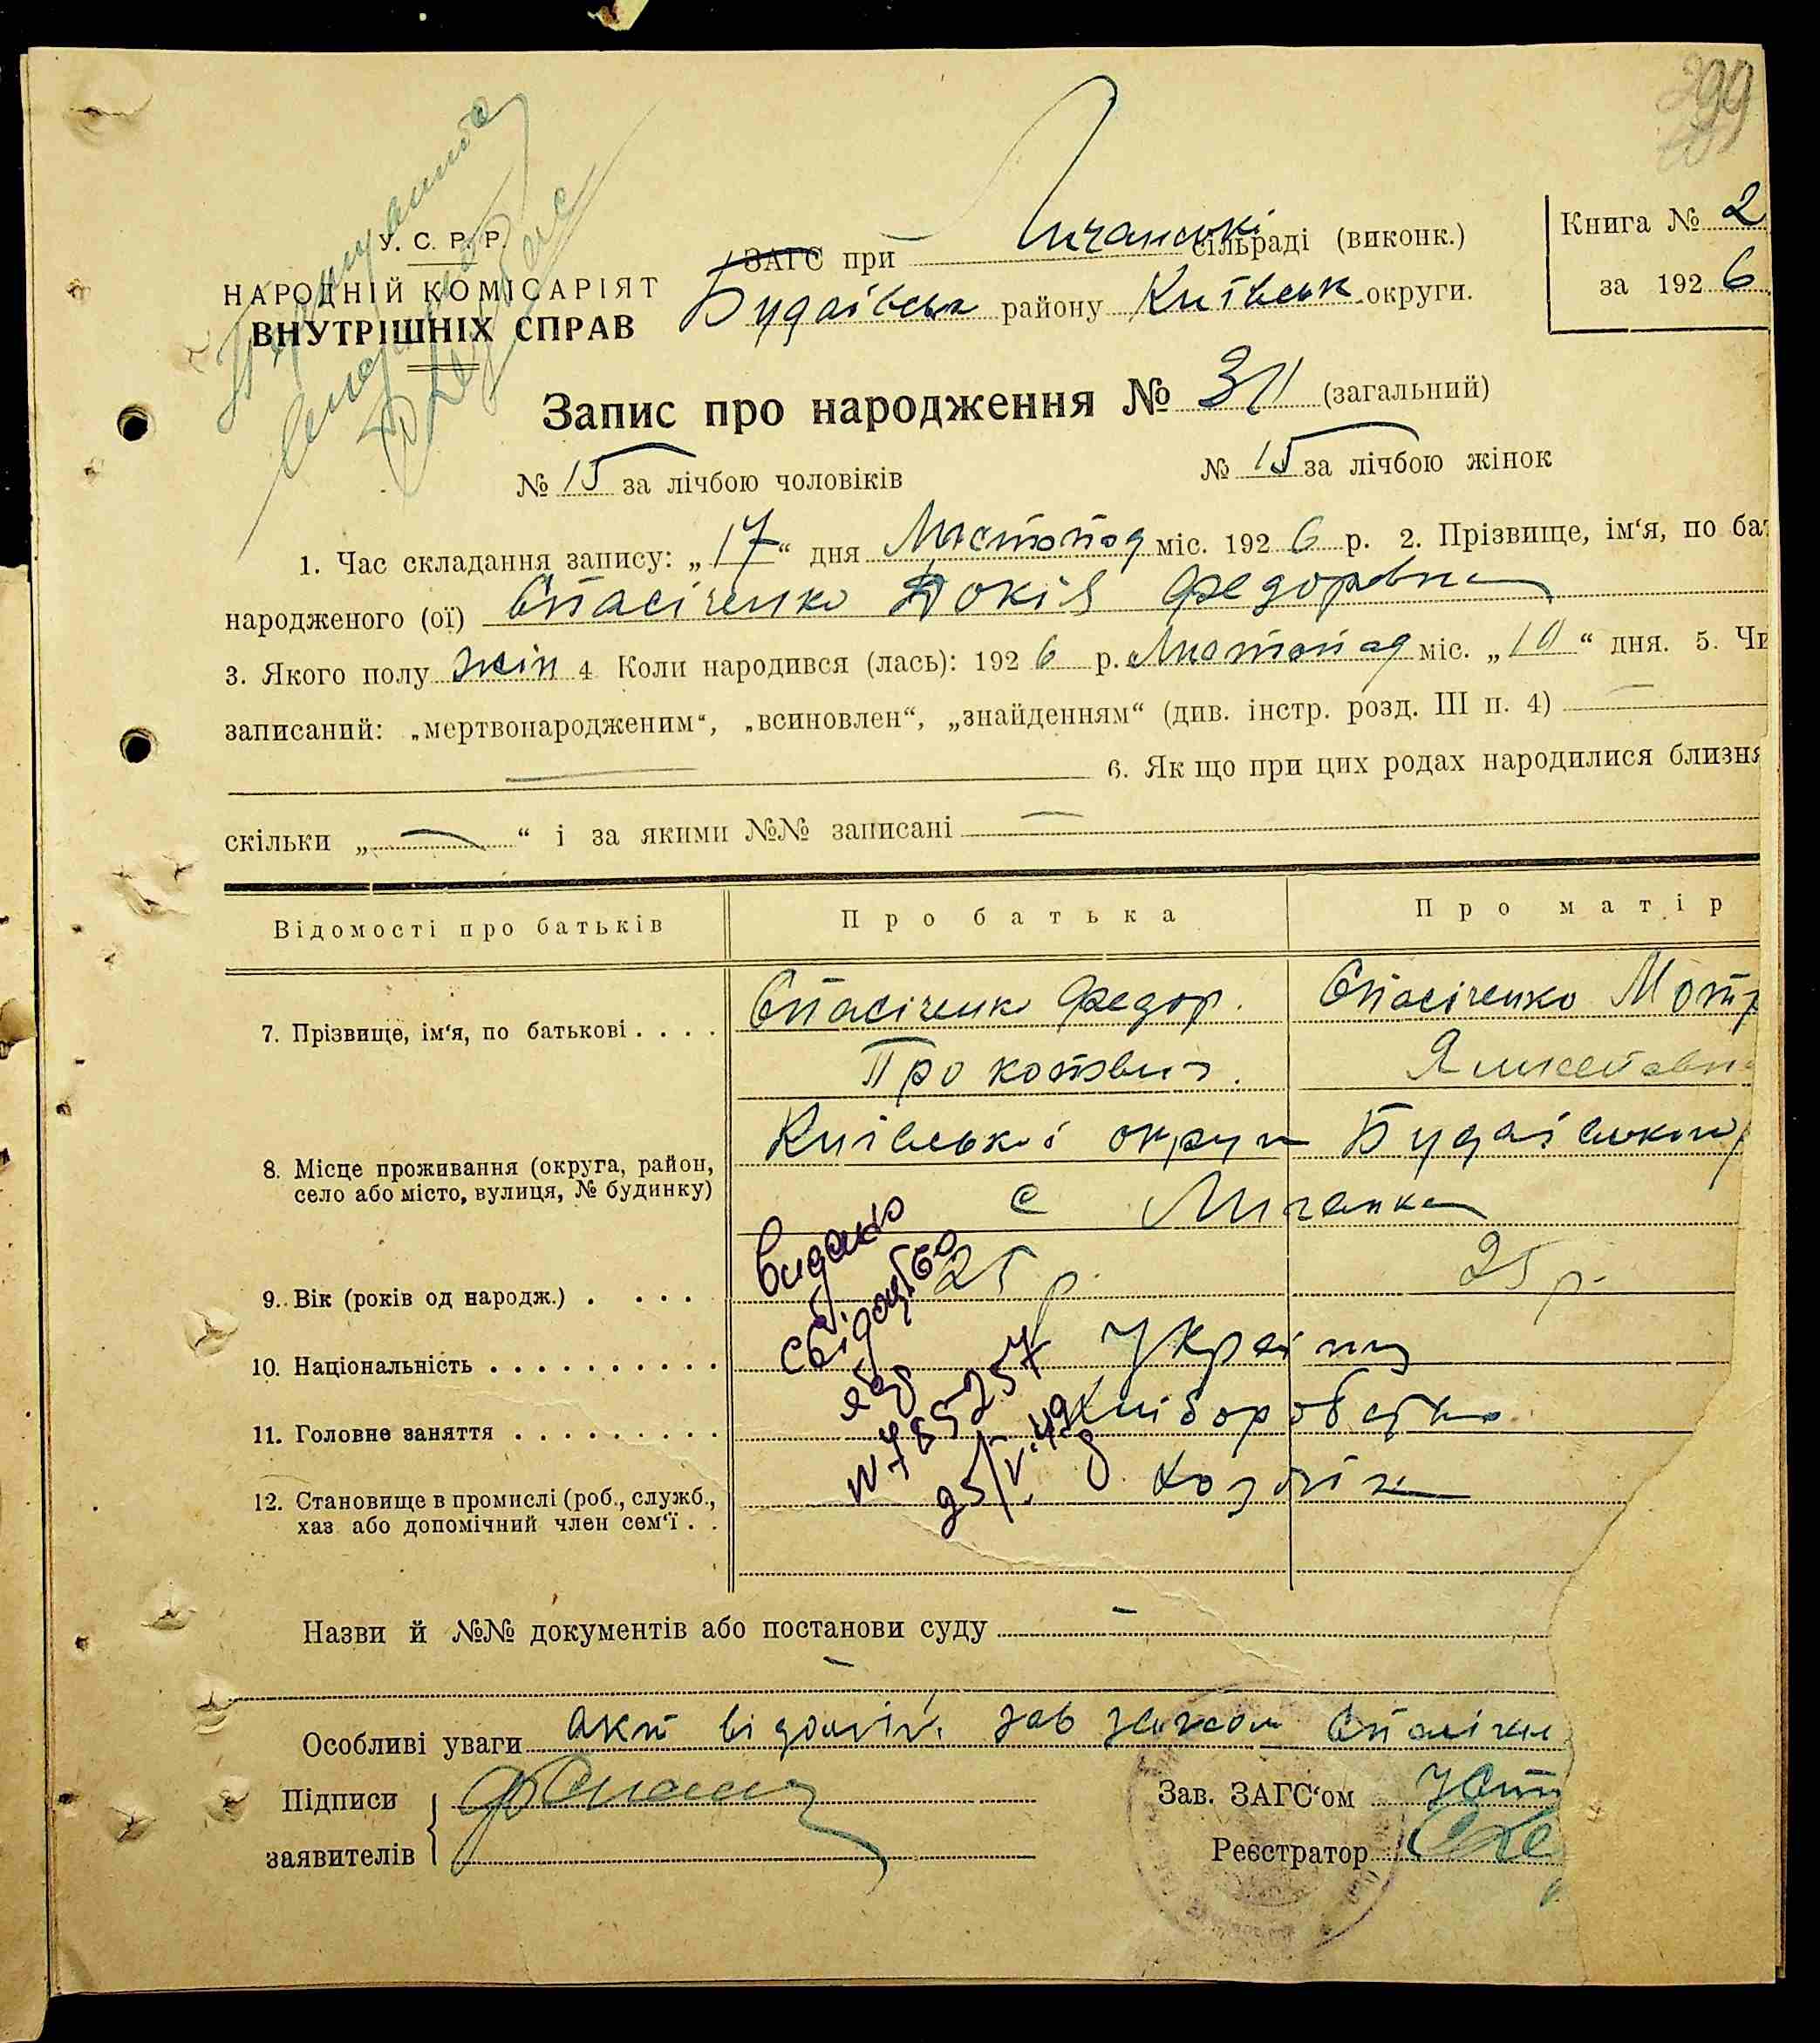 299
У. С. Р. Р.
НАРОДНІЙ КОМІСАРІЯТ
ВНУТРІШНІХ СПРАВ
ЗАГС при Личанській сільраді (виконк.)
Будаївськ району Київськ округи.
Книга № 2
за 1926
Запис про народження № 31 (загальний)
№ 15 за лічбою чоловіків
№ 15 за лічбою жінок
1. Час складання запису: „17“ дня Листопад міс. 1926 р. 2. Прізвище, ім‘я, по бат
народженого (ої) Спасіченко Докія Федоровна
3. Якого полу жін 4 Коли народився (лась): 1926 р. Листопад міс. „10“ дня. 5. Чи
записаний: „мертвонародженим“, „всиновлен“, „знайденням“ (див. інстр. розд. III п. 4) —
— 6. Як що при цих родах народилися близня
скільки „—“ і за якими №№ записані —
Відомості про батьків
Про батька
Про матір
7. Прізвище, ім‘я, по батькові . . . .
Спасіченко Федор.
Прокопович.
Спасіченко Мотр
8. Місце проживання (округа, район,
село або місто, вулиця, № будинку)
Київської округи Будаївського
с Личанка
9. Вік (років од народж.) . . . .
25 р.
25 р.
10. Національність . . . . . . . . . .
Україну
11. Головне заняття . . . . . . . . .
Хліборобство
12. Становище в промислі (роб., служб.,
хаз або допомічний член сем‘ї . .
Хозяїн
видано
свідоцтво
№ 785257
25/V.49
Назви й №№ документів або постанови суду —
—
Особливі уваги акт
Підписи
заявителів
Зав. ЗАГС‘ом
Реєстратор